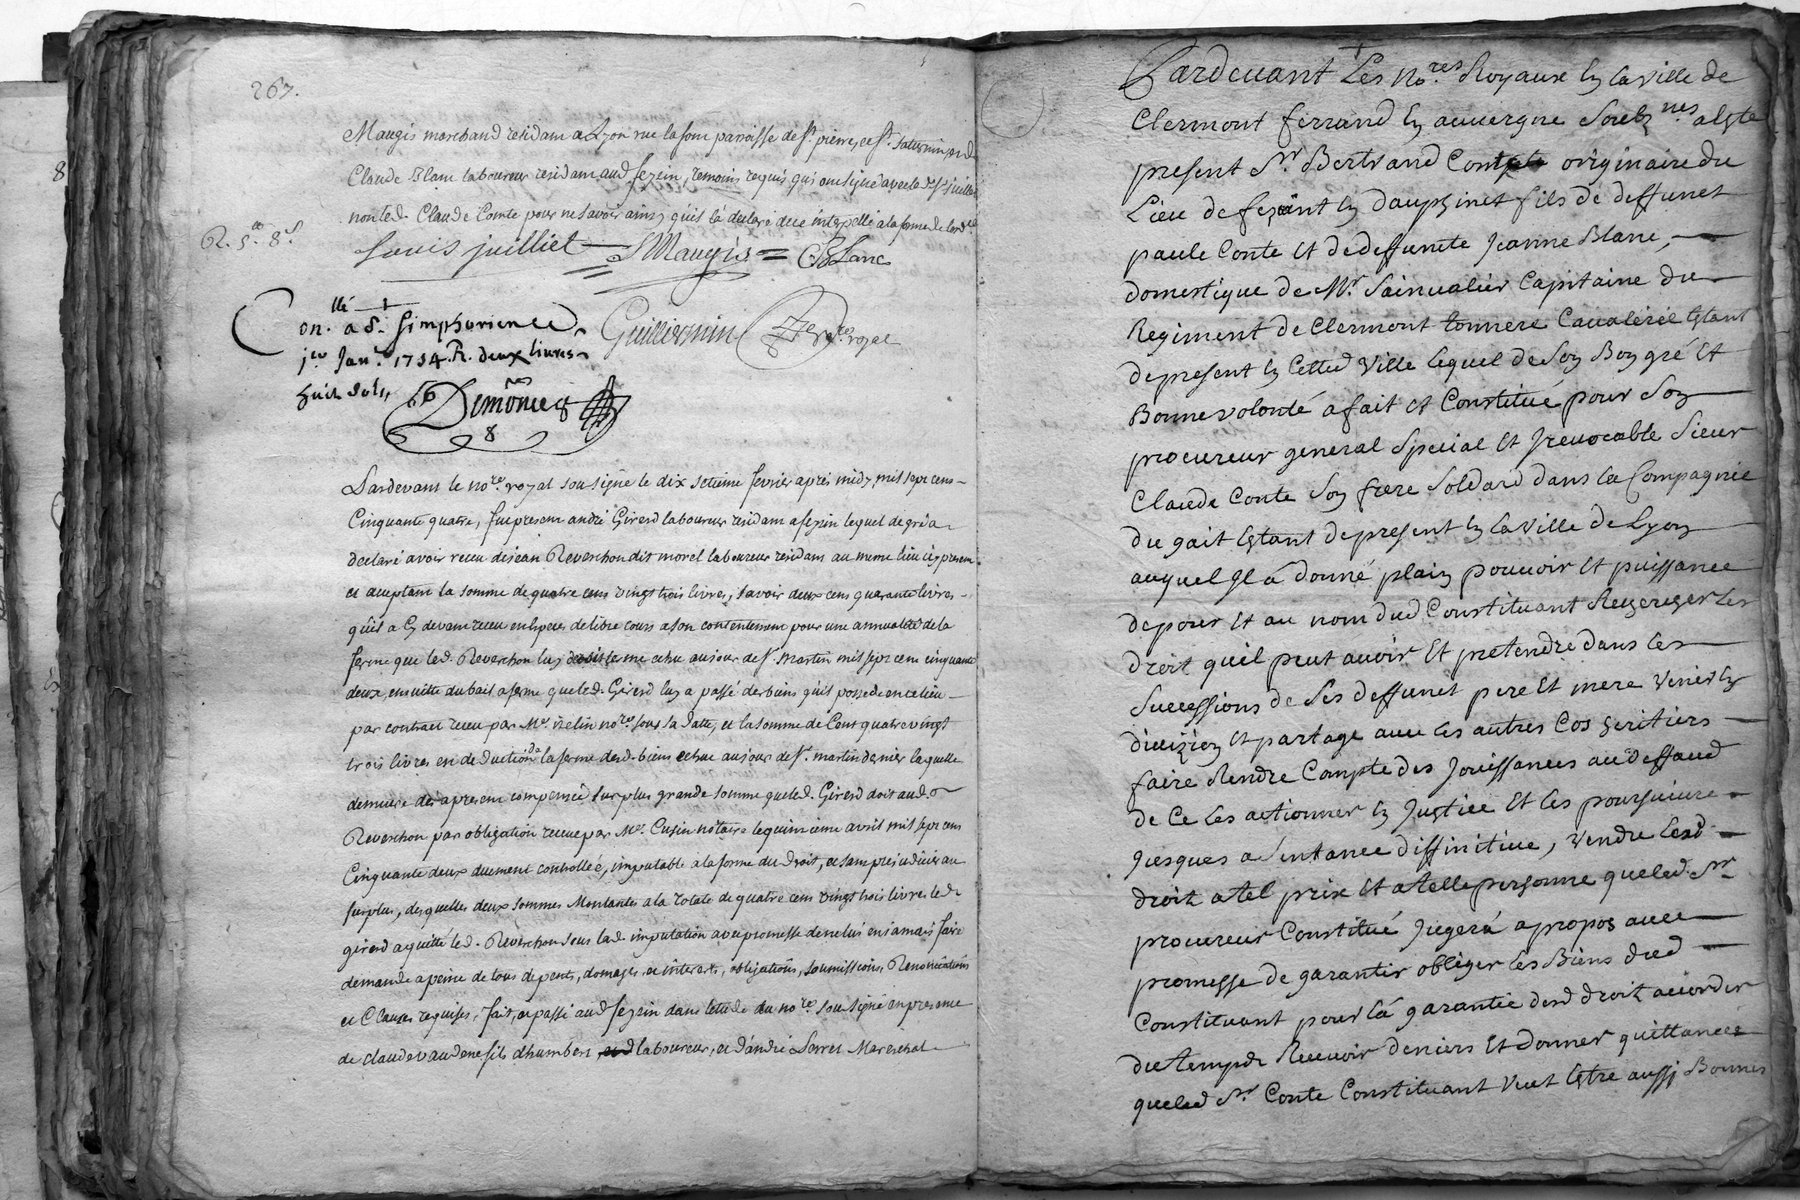 267.
Maugis marchand residam a Lyon rue lafom parroisse de st. pierre, et st. saturnin, and
Claude Blanc laboureur residam aud fezein, temoins requis qui ont signé avec led. sr. juilliet
non led. Claude Comte pour ne savoir ainsy quil la declaré de ce interpellé a la forme de lord.ce
R. 5lt 8s.
Louis juilliet S Maugis = C Blanc
Conllé a St. Simphorien ce
jer Janr. 1754. R. deux livres
huit sols,
Guillermin nore royal
Demoncey
Pardevant le nore. royal soussigné le dix setieme fevrier apres midy, mil sept cens
Cinquante quatre, fut present andré Girerd laboureur residam a fezein lequel de gré a
declaré avoir receu de jean Reverchon dit morel laboureur residant au meme lieu icy present
et acceptam la somme de quatre cens vingt trois livres, savoir deux cens quarante livres
quil a cy devant receu en especes de libre cours a son contentement pour une annualité de la
ferme que led. Reverchon luy echue au jour de st. martin mil sept cent cinquante
deux, ensuitte du bail a ferme que led. Girerd luy a passé des biens quil possede en ce lieu
par contract receu par Me. nores sous sa datte, et la somme de Cent quatre vingt
trois livres en deduction da la ferme desd. biens echue au jour de st. martin dernier laquelle
demeure des apresent compensée sur plus grande somme que led. Girerd doit aud.
Reverchon par obligation receue par Me. Cusin notaire le quinzieme avril mil sept cens
Cinquante deux duement controllée, imputable a la forme du droit, et sans prejudicier au
surplus, desquelles deux sommes Montantes a la totale de quatre cens vingt trois livres led.
girerd a quitté led. Reverchon sous lad. imputation avec promesse de ne lui en jamais faire
demande a peine de tous depents, domages, et interets, obligations, soumissions, Renonciations
et Clauses requises, fait, et passé aud fezein dans letude du nore. soussigné en presence
de claude vaudene fils dhumbert laboureur, et dandré Serret Mareschal
Pardevant Les Nores Royaux En La Ville de
Clermont ferrand En auvergne Soubznes a Este
present Sr Bertrand Conte originaire du
Lieu de fezeint En Dauphinet fils de deffunct
paule Conte Et de deffuncte Jeanne Blanc,
domestique de Mr. Sainvalier Capitaine du
Regiment de Clermont tonnere Cavalerie Estant
depresent En Cetted Ville Lequel de Son Bon gré Et
Bonne volonté a fait Et Constitué pour Son
procureur general Special Et Irrevocable Sieur
Claude Conte Son frere Soldard dans La Compagnie
du gait Estant depresent En La Ville de Lyon
auquel Il á donné plain pouvoir Et puissance
depour Et au nom dud Constituant Rechercher Les
droit quil peut avoir Et pretendre dans Les
Successions de Ses deffunct pere Et mere venir En
division Et partage avec Les autres Cos heritiers
faire Rendre Compte des Jouissances au deffaud
de Ce Les actionner En Justice Et Les poursuivre
Jusques a Sentance diffinitive, vendre Lesd
droit a tel prix Et a telle personne que led. Sr
procureur Constitué Jugerá apropos avec
promesse de garantir obliger Les Biens dud
Constituant pour Lá garantie desd droit accorder
du temps Recevoir deniers Et donner quittances
que led Sr. Conte Constituant veut Estre aussi Bonnes